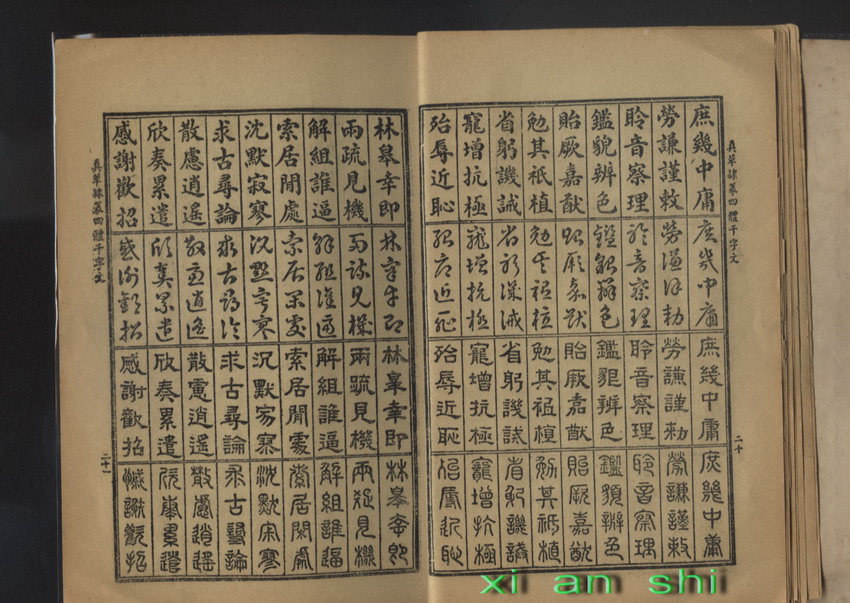 真草隸篆四體千字文 二十
庶幾中庸 庶幾中庸 庶幾中庸 庶幾中庸
勞謙謹敕 勞謙謹敕 勞謙謹敕 勞謙謹敕
聆音察理 聆音察理 聆音察理 聆音察理
鑑貌辨色 鑑貌辨色 鑑貌辨色 鑑貌辨色
貽厥嘉猷 貽厥嘉猷 貽厥嘉猷 貽厥嘉猷
勉其祗植 勉其祗植 勉其祗植 勉其祗植
省躬譏誡 省躬譏誡 省躬譏誡 省躬譏誡
寵增抗極 寵增抗極 寵增抗極 寵增抗極
殆辱近恥 殆辱近恥 殆辱近恥 殆辱近恥
林皋幸即 林皋幸即 林皋幸即 林皋幸即
兩疏見機 兩疏見機 兩疏見機 兩疏見機
解組誰逼 解組誰逼 解組誰逼 解組誰逼
索居閒處 索居閒處 索居閒處 索居閒處
沈默寂寥 沈默寂寥 沈默寂寥 沈默寂寥
求古尋論 求古尋論 求古尋論 求古尋論
散慮逍遙 散慮逍遙 散慮逍遙 散慮逍遙
欣奏累遣 欣奏累遣 欣奏累遣 欣奏累遣
感謝歡招 感謝歡招 感謝歡招 感謝歡招
真草隸篆四體千字文 二十一
xi an shi